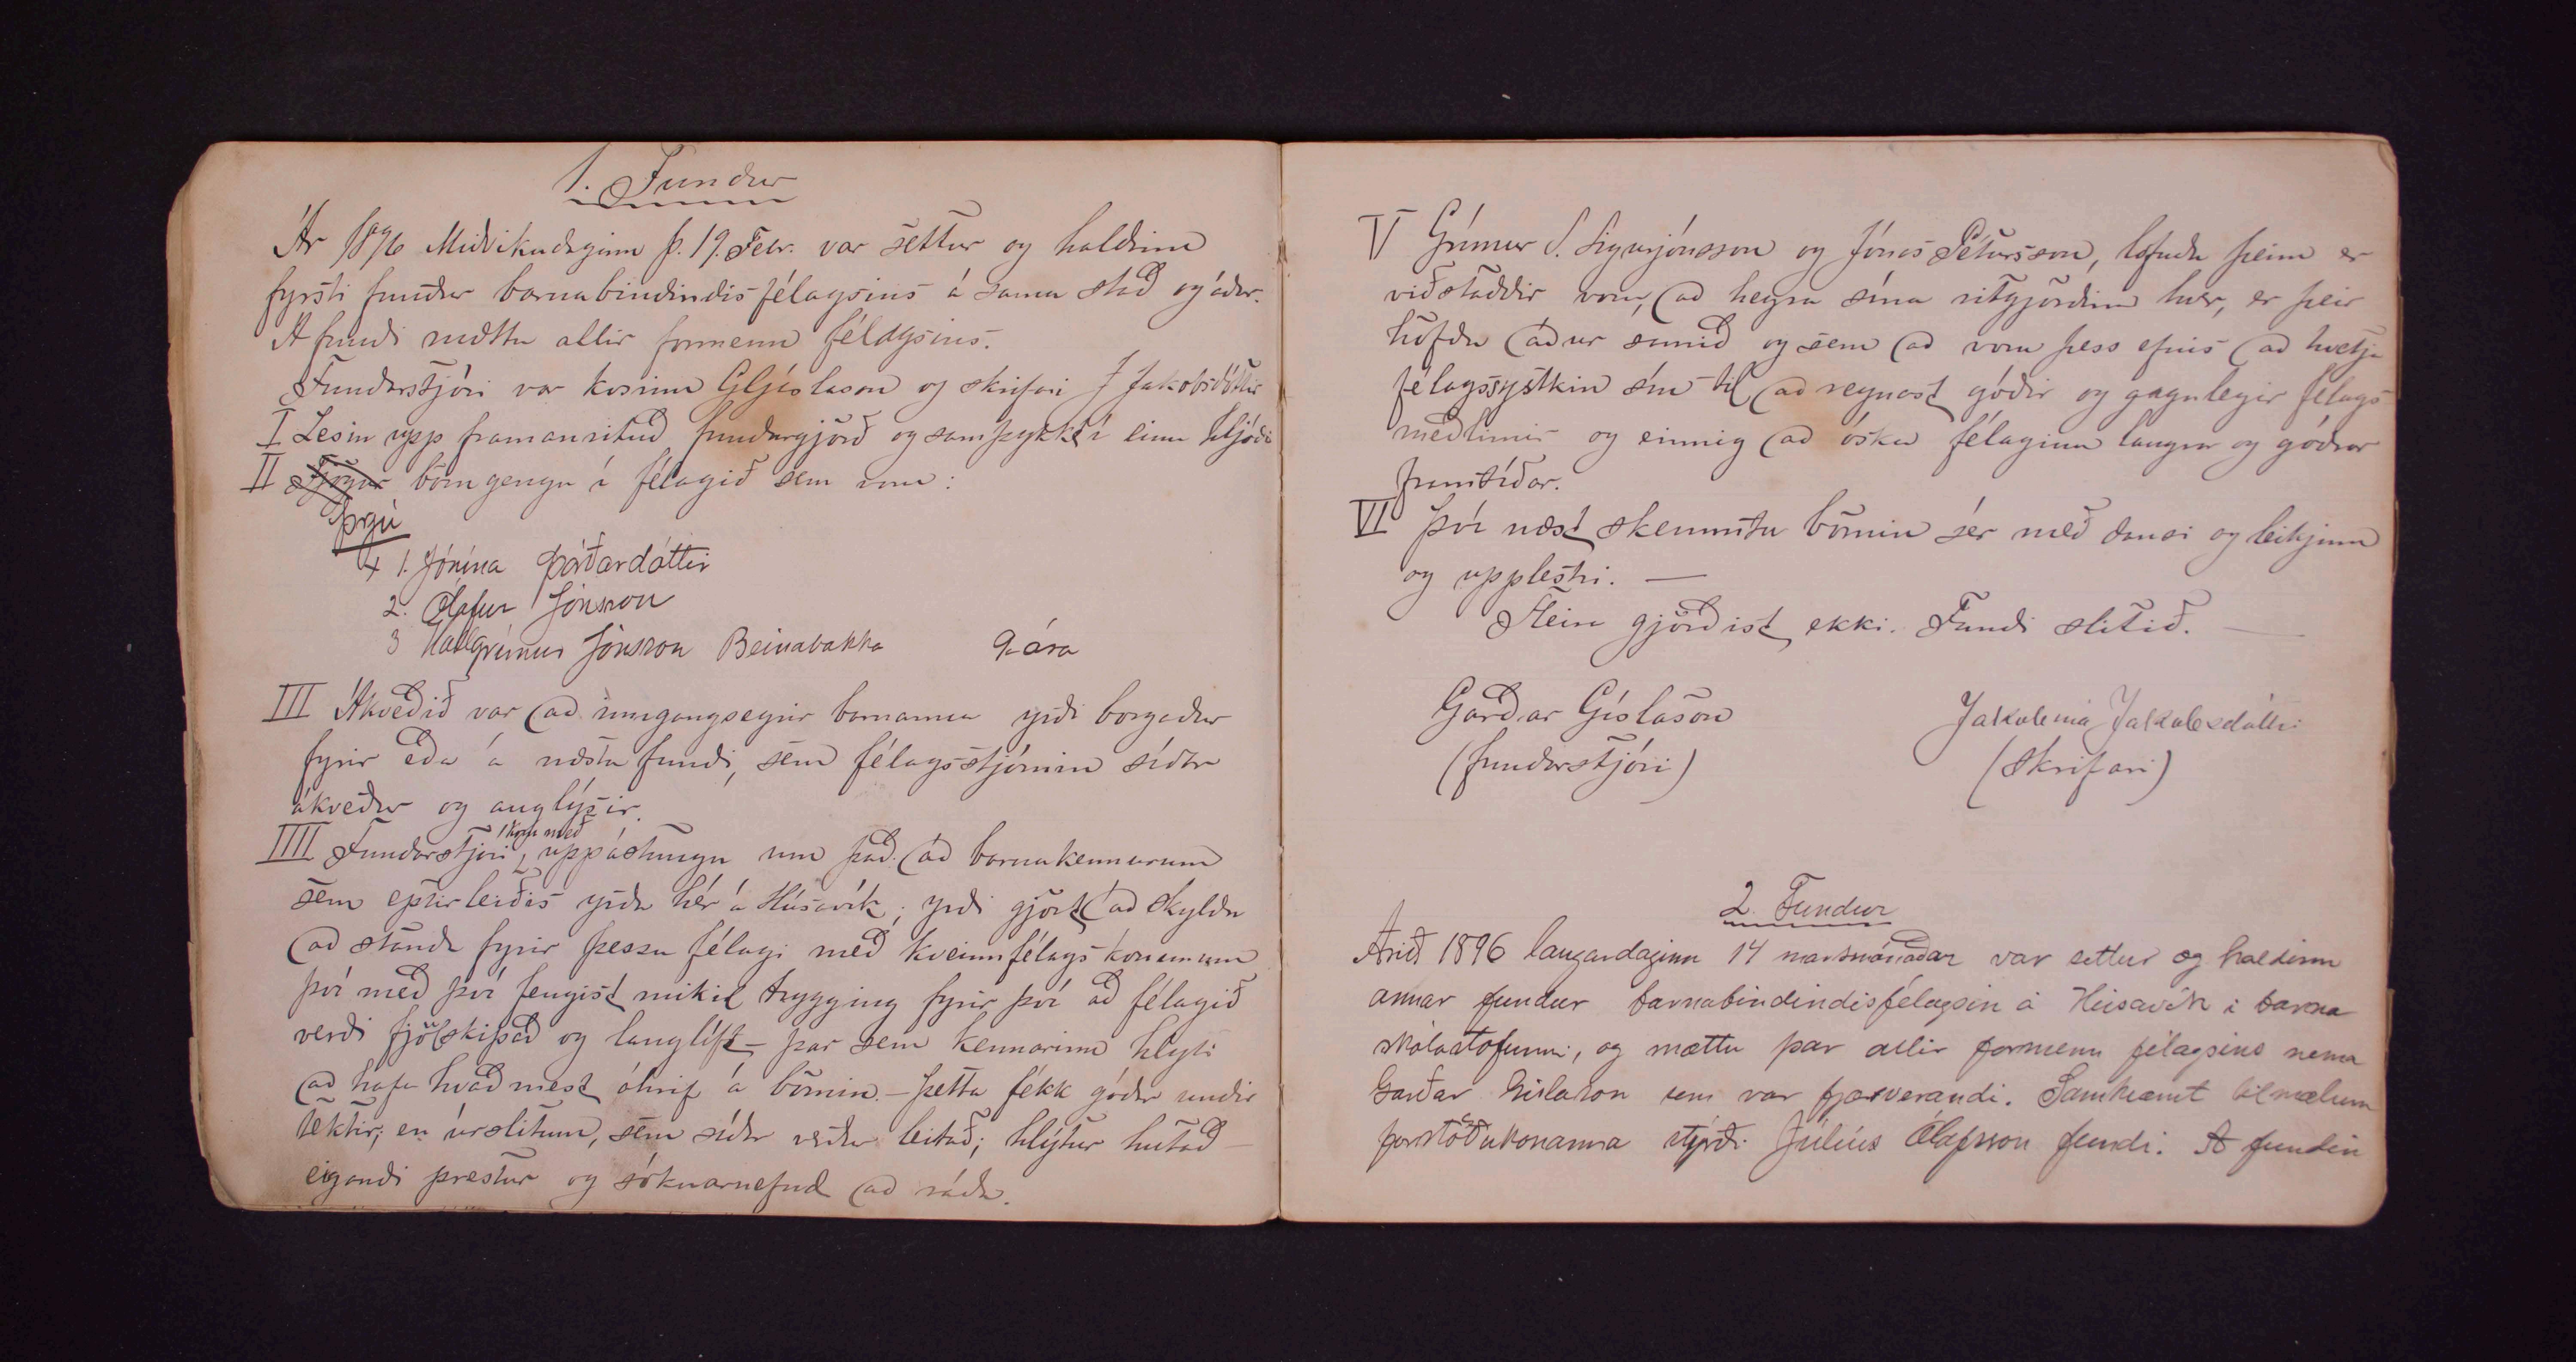 1. Fundur
Ár 1896 Miðvikudaginn þ. 19. Febr. var settur og haldinn
fyrsti fundur barnabindindisfélagsins á sama stað og áður.
Á fundi mættu allir formenn félagsins.
Fundarstjóri var kosinn G Gíslason og skrifari J Jakobsdóttir
I Lesin upp framanrituð fundargjörð og samþykkt í einu hljóði
II Fjögur börn gengu í félagið sem voru:
Þrjú
+ 1. Jónína Þórðardóttir
2. Ólafur Jónsson
3 Hallgrímur Jónsson Beinabakka 9 ára
III Ákveðið var að inngangseyrir barnanna yrði borgaður
fyrir eða á næsta fundi, sem félagsstjórnin síðar
ákveður og auglýsir.
IIII Fundarstjóri, kom með uppástungu um það að barnakennurum
sem eptirleiðis yrðu hér á Húsavík; yrði gjört að skyldu
að standa fyrir þessu félagi með kvennfélags konunum
því með því fengist mikil trygging fyrir því að félagið
verði fjölskipað og langlíft – þar sem kennarinn hlyti
að hafa hvað mest áhrif á börnin. – Þetta fékk góðar undir
tektir; en úrslitum, sem síðar verður leitað; hlýtur hutað
eigandi prestur og sóknarnefnd að ráða.
V Grímur S. Sigurjónsson og Jónas Pétursson, lofuðu þeim er
viðstaddir voru, að heyra sína ritgjörðina hver, er þeir
höfðu áður samið og sem að voru þess efnis að hvetja
félagssystkin sín til að reynast góðir og gagnlegir félags
meðlimir og einnig að óska félaginu langrar og góðrar
framtíðar.
VI Því næst skemmtu börnin sér með dansi og leikjum
og upplestri. —
Fleira gjörðist ekki. Fundi slitið. —
Garðar Gíslason
(fundarstjóri)
Jakobína Jakobsdóttir
(Skrifari)
2. Fundur
Árið 1896 laugardaginn 14 marsmánaðar var settur og haldinn
annar fundur barnabindindisfélagsin á Húsavík í barna
skólastofunni, og mættu þar allir formenn félagsins nema
Garðar Gíslason sem var fjærverandi. Samkvæmt tilmælum
forstöðukonanna stýrði Júlíus Ólafsson fundi. Á fundin